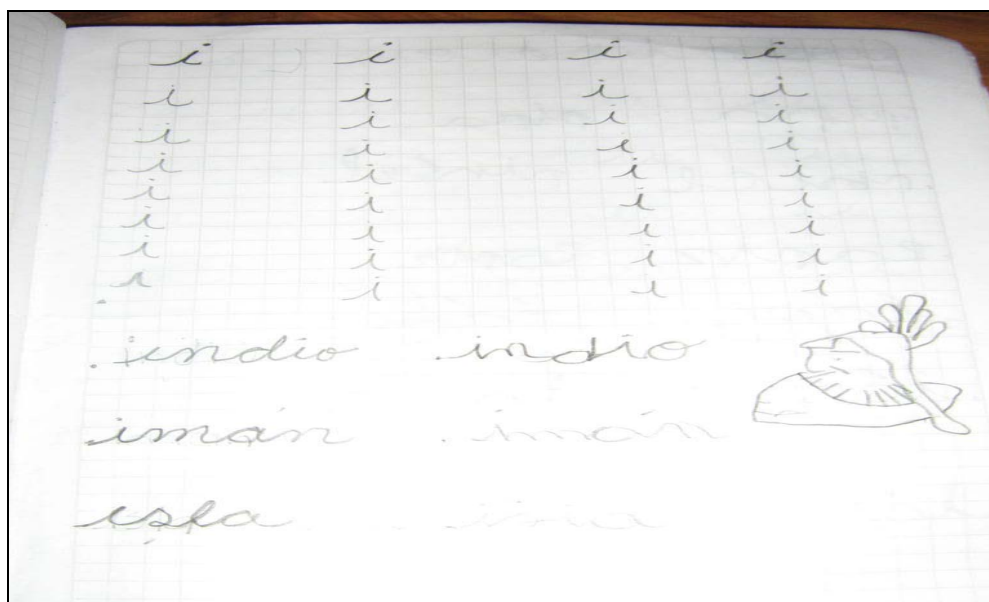 i i i i
i i i i
i i i i
i i i i
i i i i
i i i i
i i i i
i i i i
i i i
indio indio
imán imán
isla